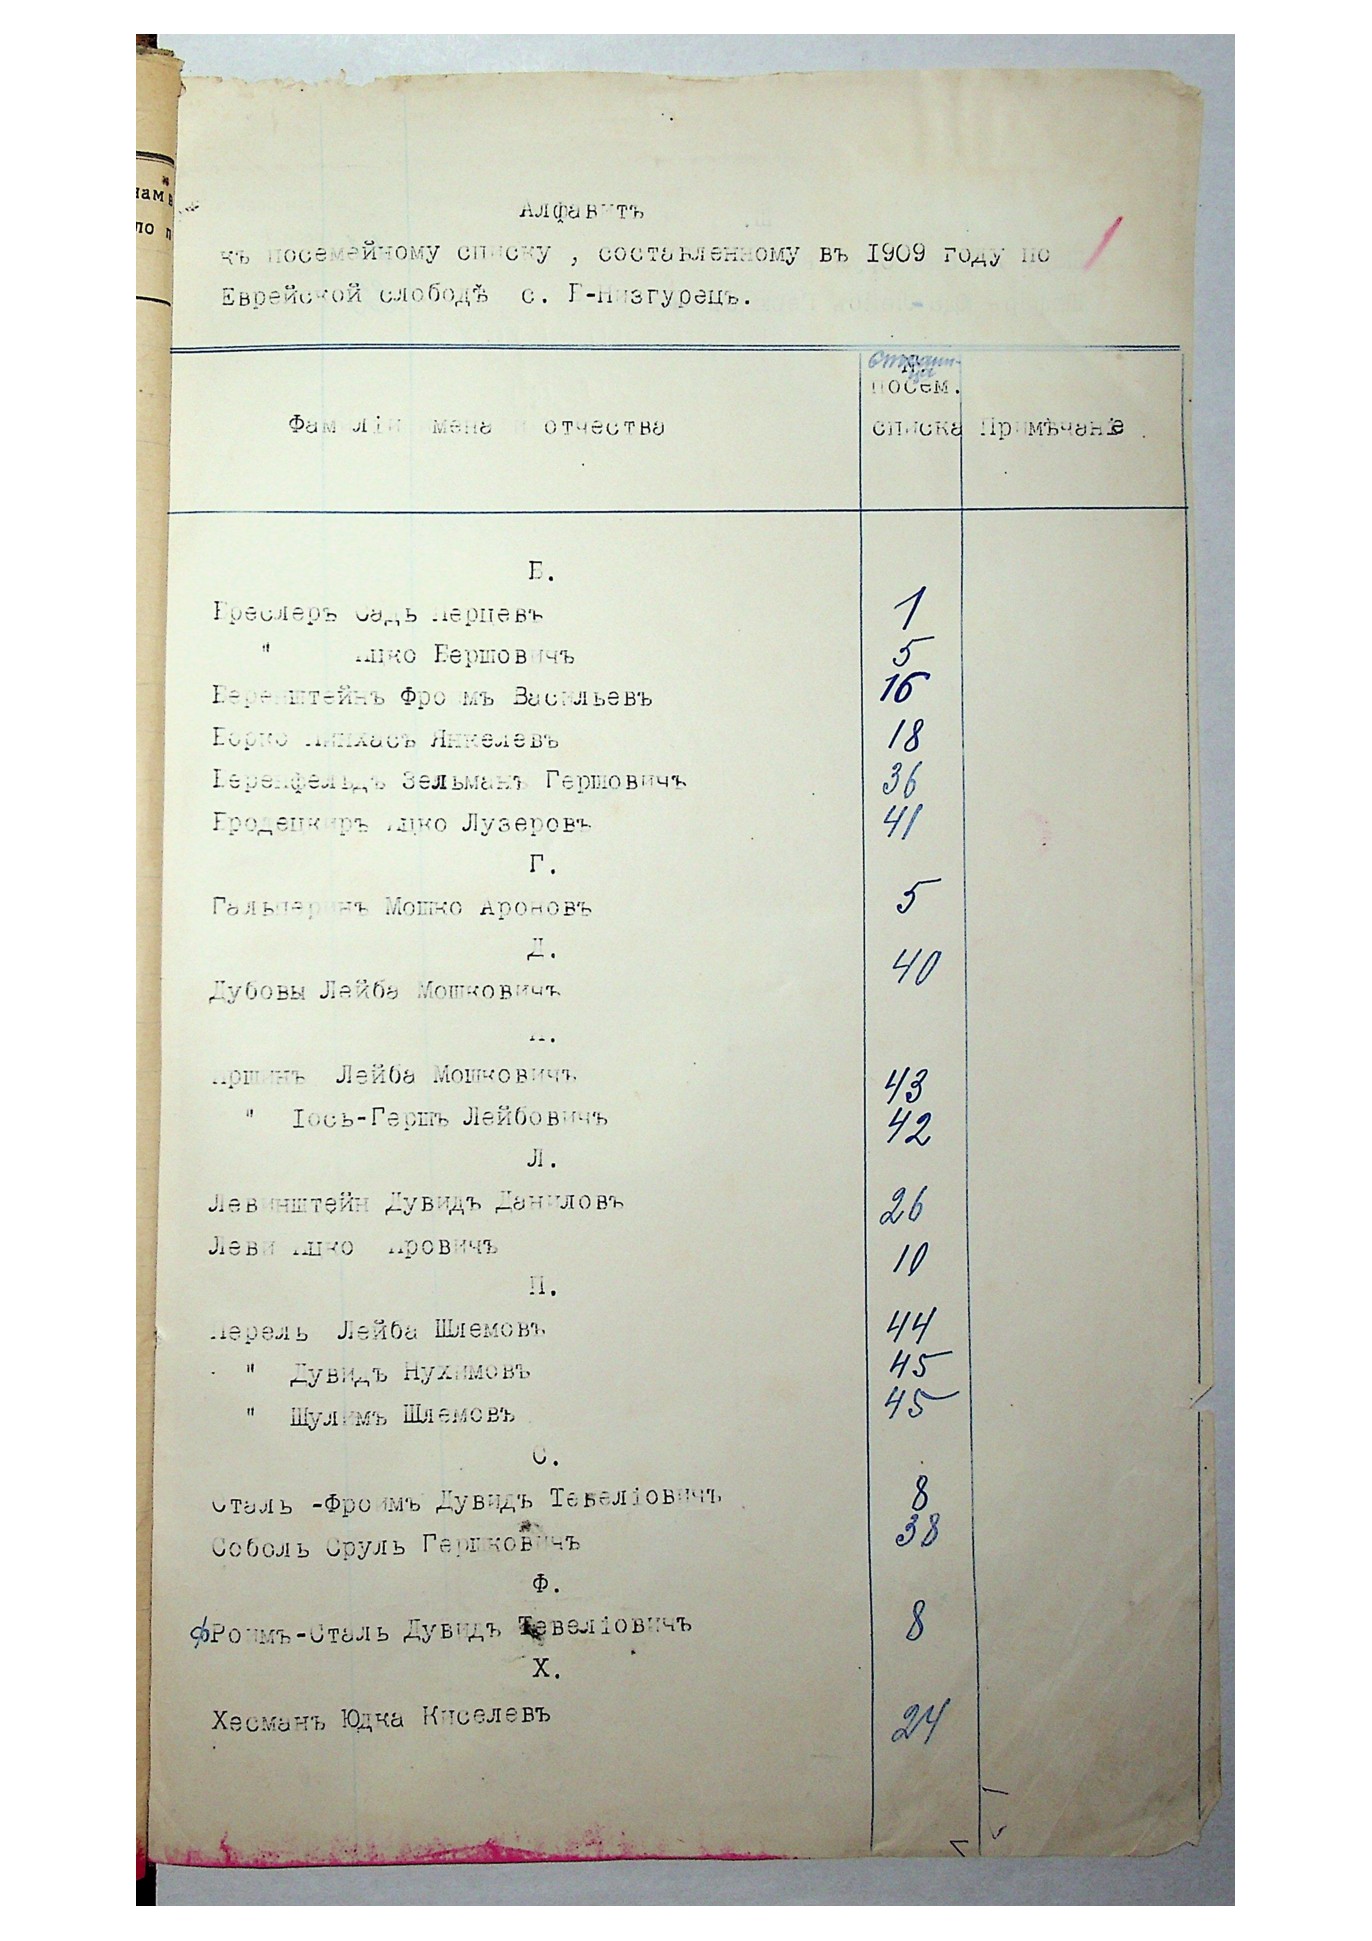 нам
ло п
Алфавитъ
къ посемейному списку , составленному въ 1909 году по
Еврейской слободѣ с. Б-Низгурецъ.
Страни-
цы
№
посем.
Фамиліи имена и отчества списка Примѣчаніе
Б.
Бреслеръ Садь Перцевъ 1
" Ицко Бершовичъ 5
Беренштейнъ Фроимъ Васильевъ 16
Борко Пинхасъ Янкелевъ 18
Беренфельдъ Зельманъ Гершовичъ 36
Бродецкиръ Ицко Лузеровъ 41
Г.
Гальперинъ Мошко Ароновъ 5
Д.
Дубовы Лейба Мошковичъ 40
К.
Лейба Мошковичъ 43
" Іось-Гершъ Лейбовичъ 42
Л.
Левинштейн Дувидъ Даниловъ 26
Леви Ицко 10
П.
Перель Лейба Шлемовъ 44
" Дувидъ Нухимовъ 45
" Шулимъ Шлемовъ 45
С.
Сталь -Фроимъ Дувидъ Тевеліовичъ 8
Соболь Сруль Гершковичъ 38
Ф.
фРоимъ-Сталь Дувидъ Тевеліовичъ 8
Х.
Хесманъ Юдка Киселевъ 24